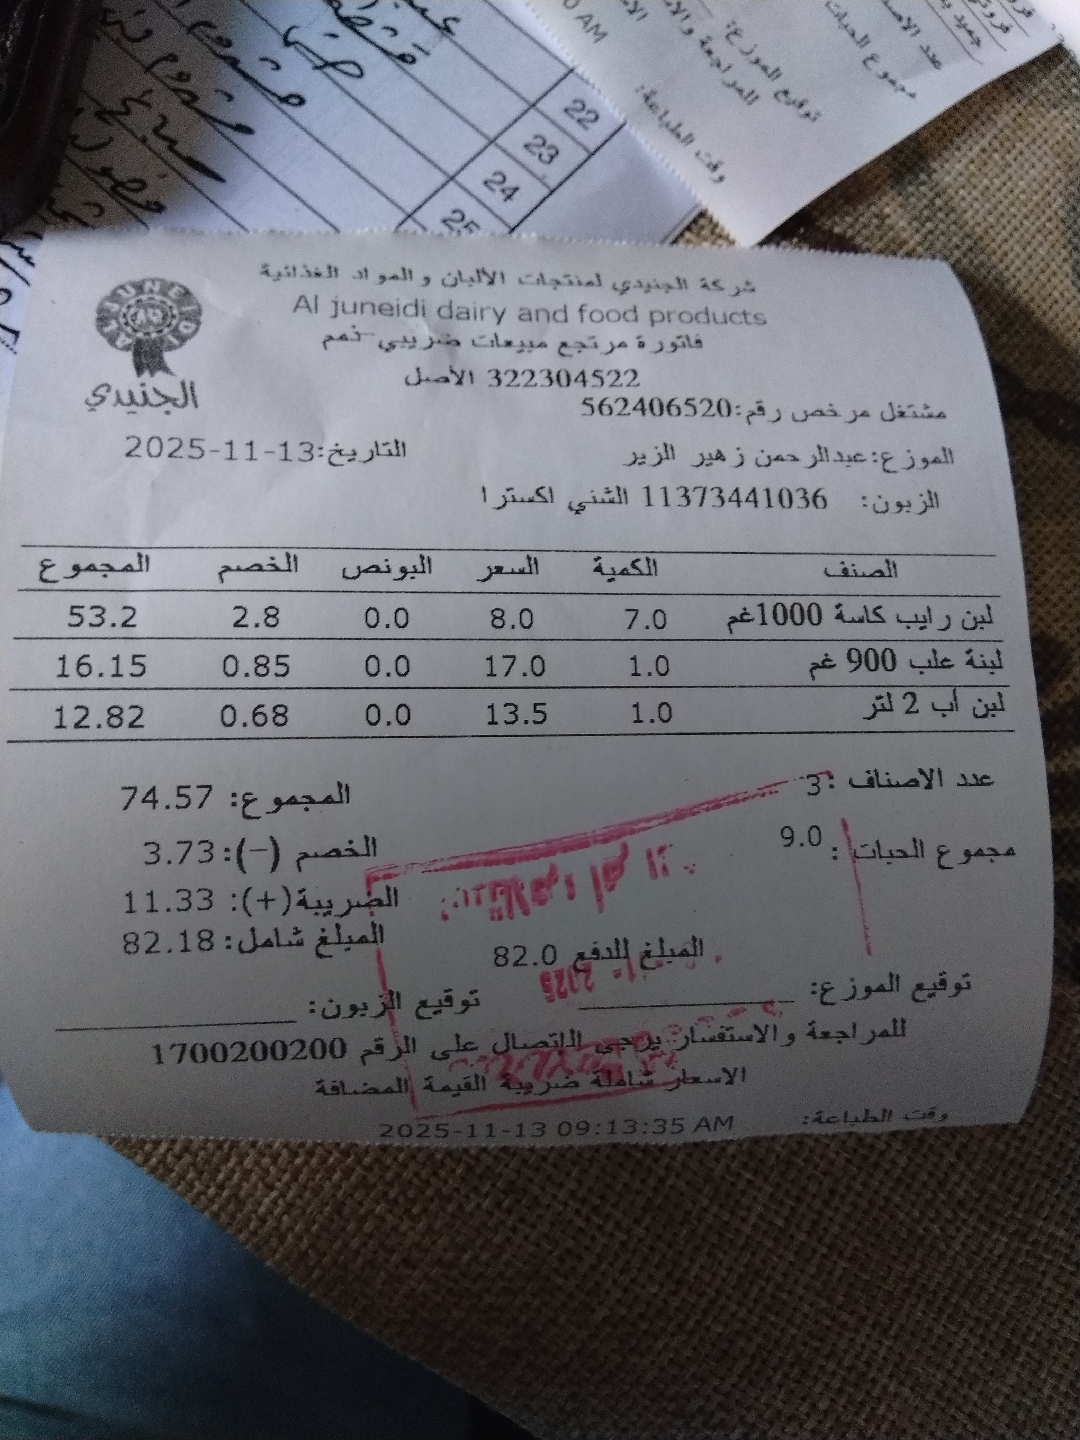 22
23
24
25
توقيع الموزع:
وقت الطباعة:
مجموع الحبات
شركة الجنيدي لمنتجات الألبان والمواد الغذائية
Al juneidi dairy and food products
فاتورة مرتجع مبيعات ضريبي ذمم
322304522 الأصل
الجنيدي
مشتغل مرخص رقم:562406520
الموزع:عبدالرحمن زهير الزير
التاريخ:2025-11-13
الزبون: 11373441036 الشني اكسترا
الصنف الكمية السعر البونص الخصم المجموع
لبن رايب كاسة 1000غم 7.0 8.0 0.0 2.8 53.2
لبنة علب 900 غم 1.0 17.0 0.0 0.85 16.15
لبن أب 2 لتر 1.0 13.5 0.0 0.68 12.82
عدد الاصناف :3
المجموع: 74.57
مجموع الحبات : 9.0
الخصم (-): 3.73
الضريبة(+): 11.33
المبلغ شامل: 82.18
المبلغ للدفع 82.0
2025
توقيع الموزع:
توقيع الزبون:
للمراجعة والاستفسار يرجى الاتصال على الرقم 1700200200
الاسعار شاملة ضريبة القيمة المضافة
وقت الطباعة: 2025-11-13 09:13:35 AM